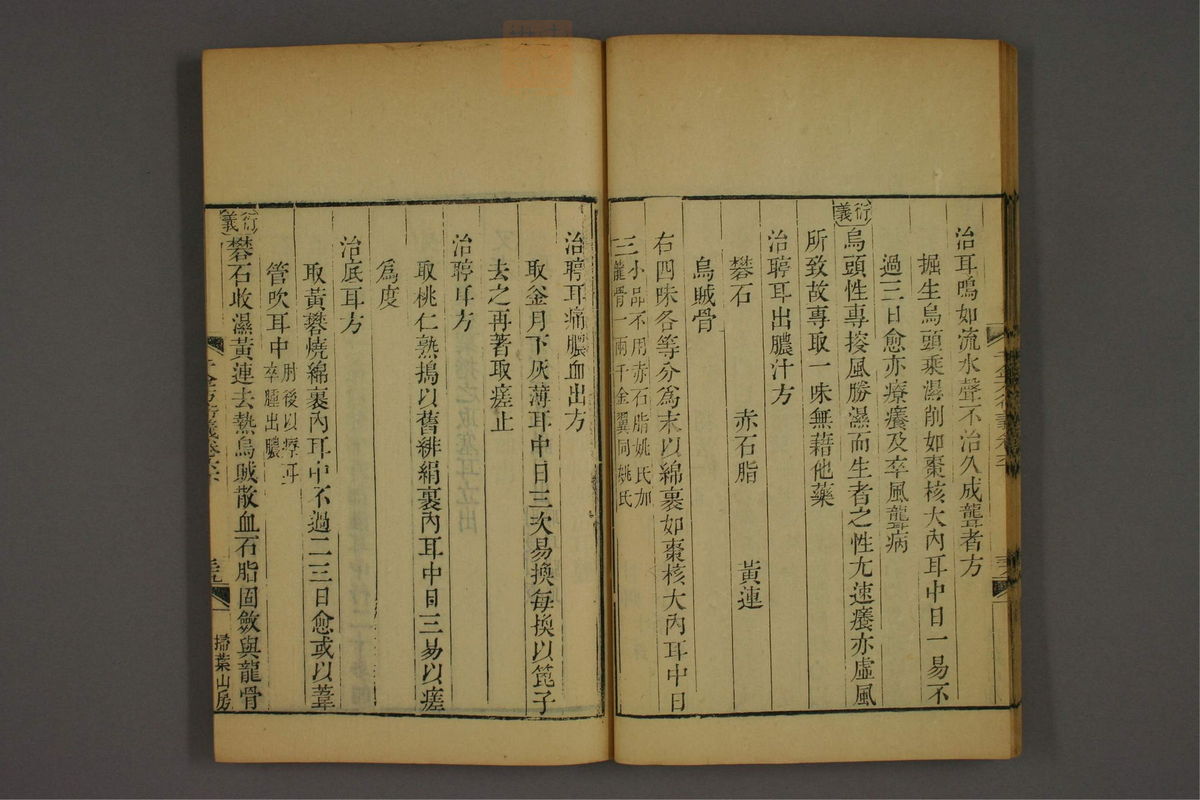 治耳鳴如流水聲不治久成聾者方
掘生烏頭乘濕削如棗核大內耳中日一易不
過三日愈亦療癢及卒風聾病
衍義
烏頭性專搜風勝濕而生者之性尤速癢亦虛風
所致故專取一味無藉他藥
治聤耳出膿汁方
礬石 赤石脂 黃連
烏賊骨
右四味各等分爲末以綿裹如棗核大內耳中日
三
小品不用赤石脂姚氏加
龍骨一兩千金翼同姚氏
治聤耳痛膿血出方
取釜月下灰薄耳中日三次易換每換以箆子
去之再著取瘥止
治聤耳方
取桃仁熟搗以舊緋絹裹內耳中日三易以瘥
爲度
治底耳方
取黃礬燒綿裹內耳中不過二三日愈或以葦
管吹耳中
肘後以療耳
卒腫出膿
衍義
礬石收濕黃連去熱烏賊散血石脂固斂與龍骨
掃葉山房